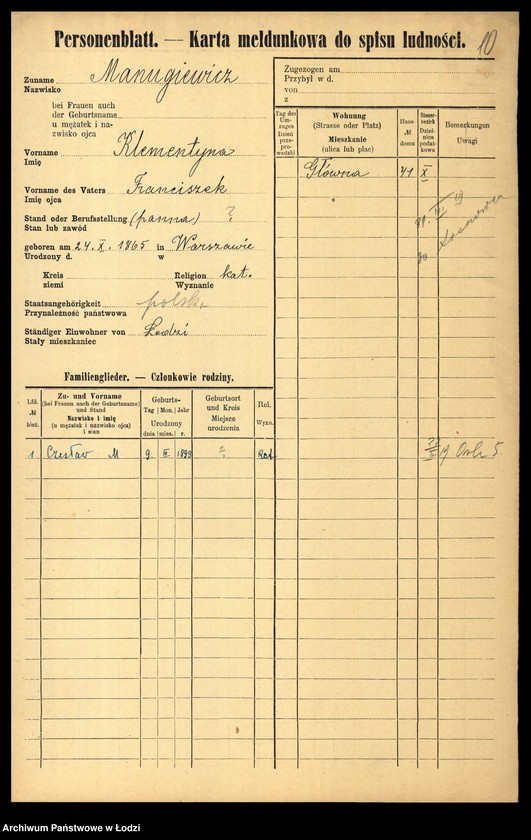 Personenblatt. — Karta meldunkowa do spisu ludności. 10
Zuname Manugiewicz
Nazwisko
bei Frauen auch
der Geburtsname
u mężatek i na-
zwisko ojca
Vorname Klementyna
Imię
Vorname des Vaters Franciszek
Imię ojca
Stand oder Berufsstellung (panna) ?
Stan lub zawód
geboren am 24. X. 1865 in Warszawie
Urodzony d. w
Kreis Religion kat.
ziemi Wyznanie
Staatsangehörigkeit polska
Przynależność państwowa
Ständiger Einwohner von Łodzi
Stały mieszkaniec
Familienglieder. — Członkowie rodziny.
Lfd. № bież.
Zu- und Vorname
(bei Frauen auch der Geburtsname)
und Stand
Nazwisko i imię
(u mężatek i nazwisko ojca)
i stan
Geburts-
Tag Mon. Jahr
Urodzony
dnia mies. r.
Geburtsort
und Kreis
Miejsce
urodzenia
Rel.
Wyzn.
1 Czesław M 9 III 1899 ? Kat
Zugezogen am
Przybył w d.
von
z
Tag des
Um-
zuges
Dzień
prze-
prowadzki
Wohnung
(Strasse oder Platz)
Mieszkanie
(ulica lub plac)
Haus-
№
domu
Steuer-
bezirk
Dziel-
nica
podat-
kowa
Bemerkungen
Uwagi
Główna 41 X
19 Orla 5
Archiwum Państwowe w Łodzi